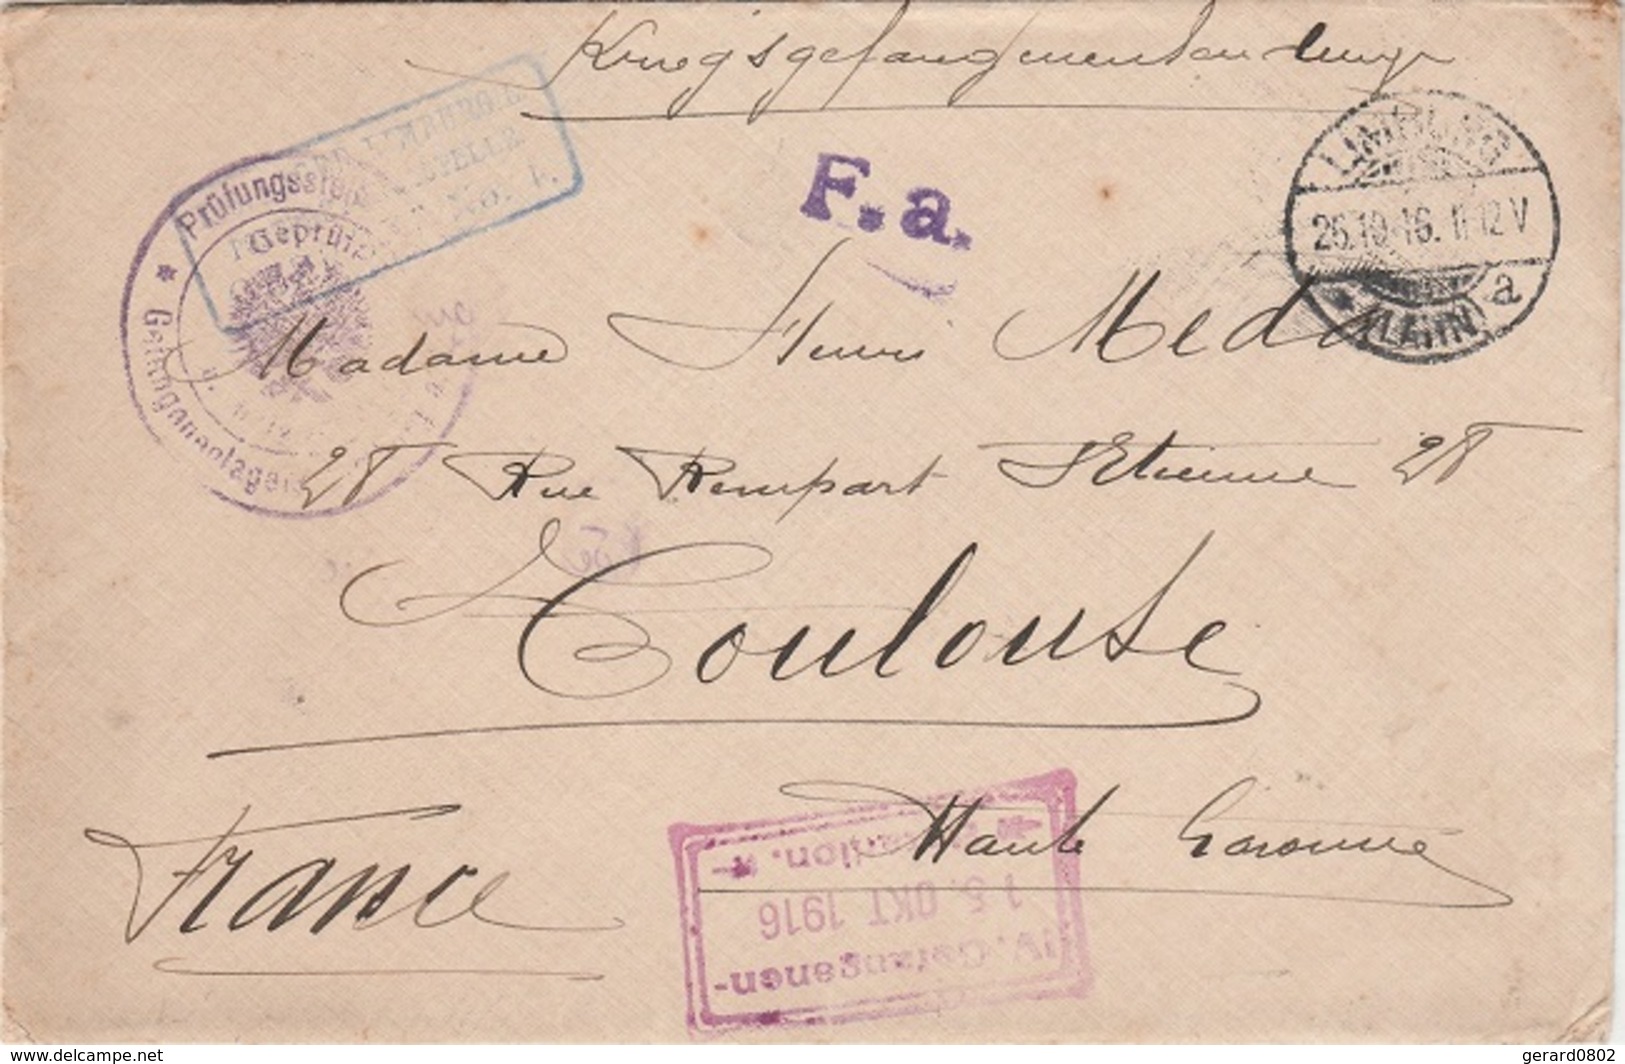 Kriegsgefangenensendung
F.a.
LIMBURG
26.10.16. 11-12 V
a
* (LAHN)
Prüfungsstelle
Geprüft
* Gefangenenlager
No. 1.
Madame Henri Meda
28 Rue Rempart St Etienne 28
Toulouse
Haute Garonne
France
IV. Gefangenen-
15. OKT. 1916
www.delcampe.net
gerard0802